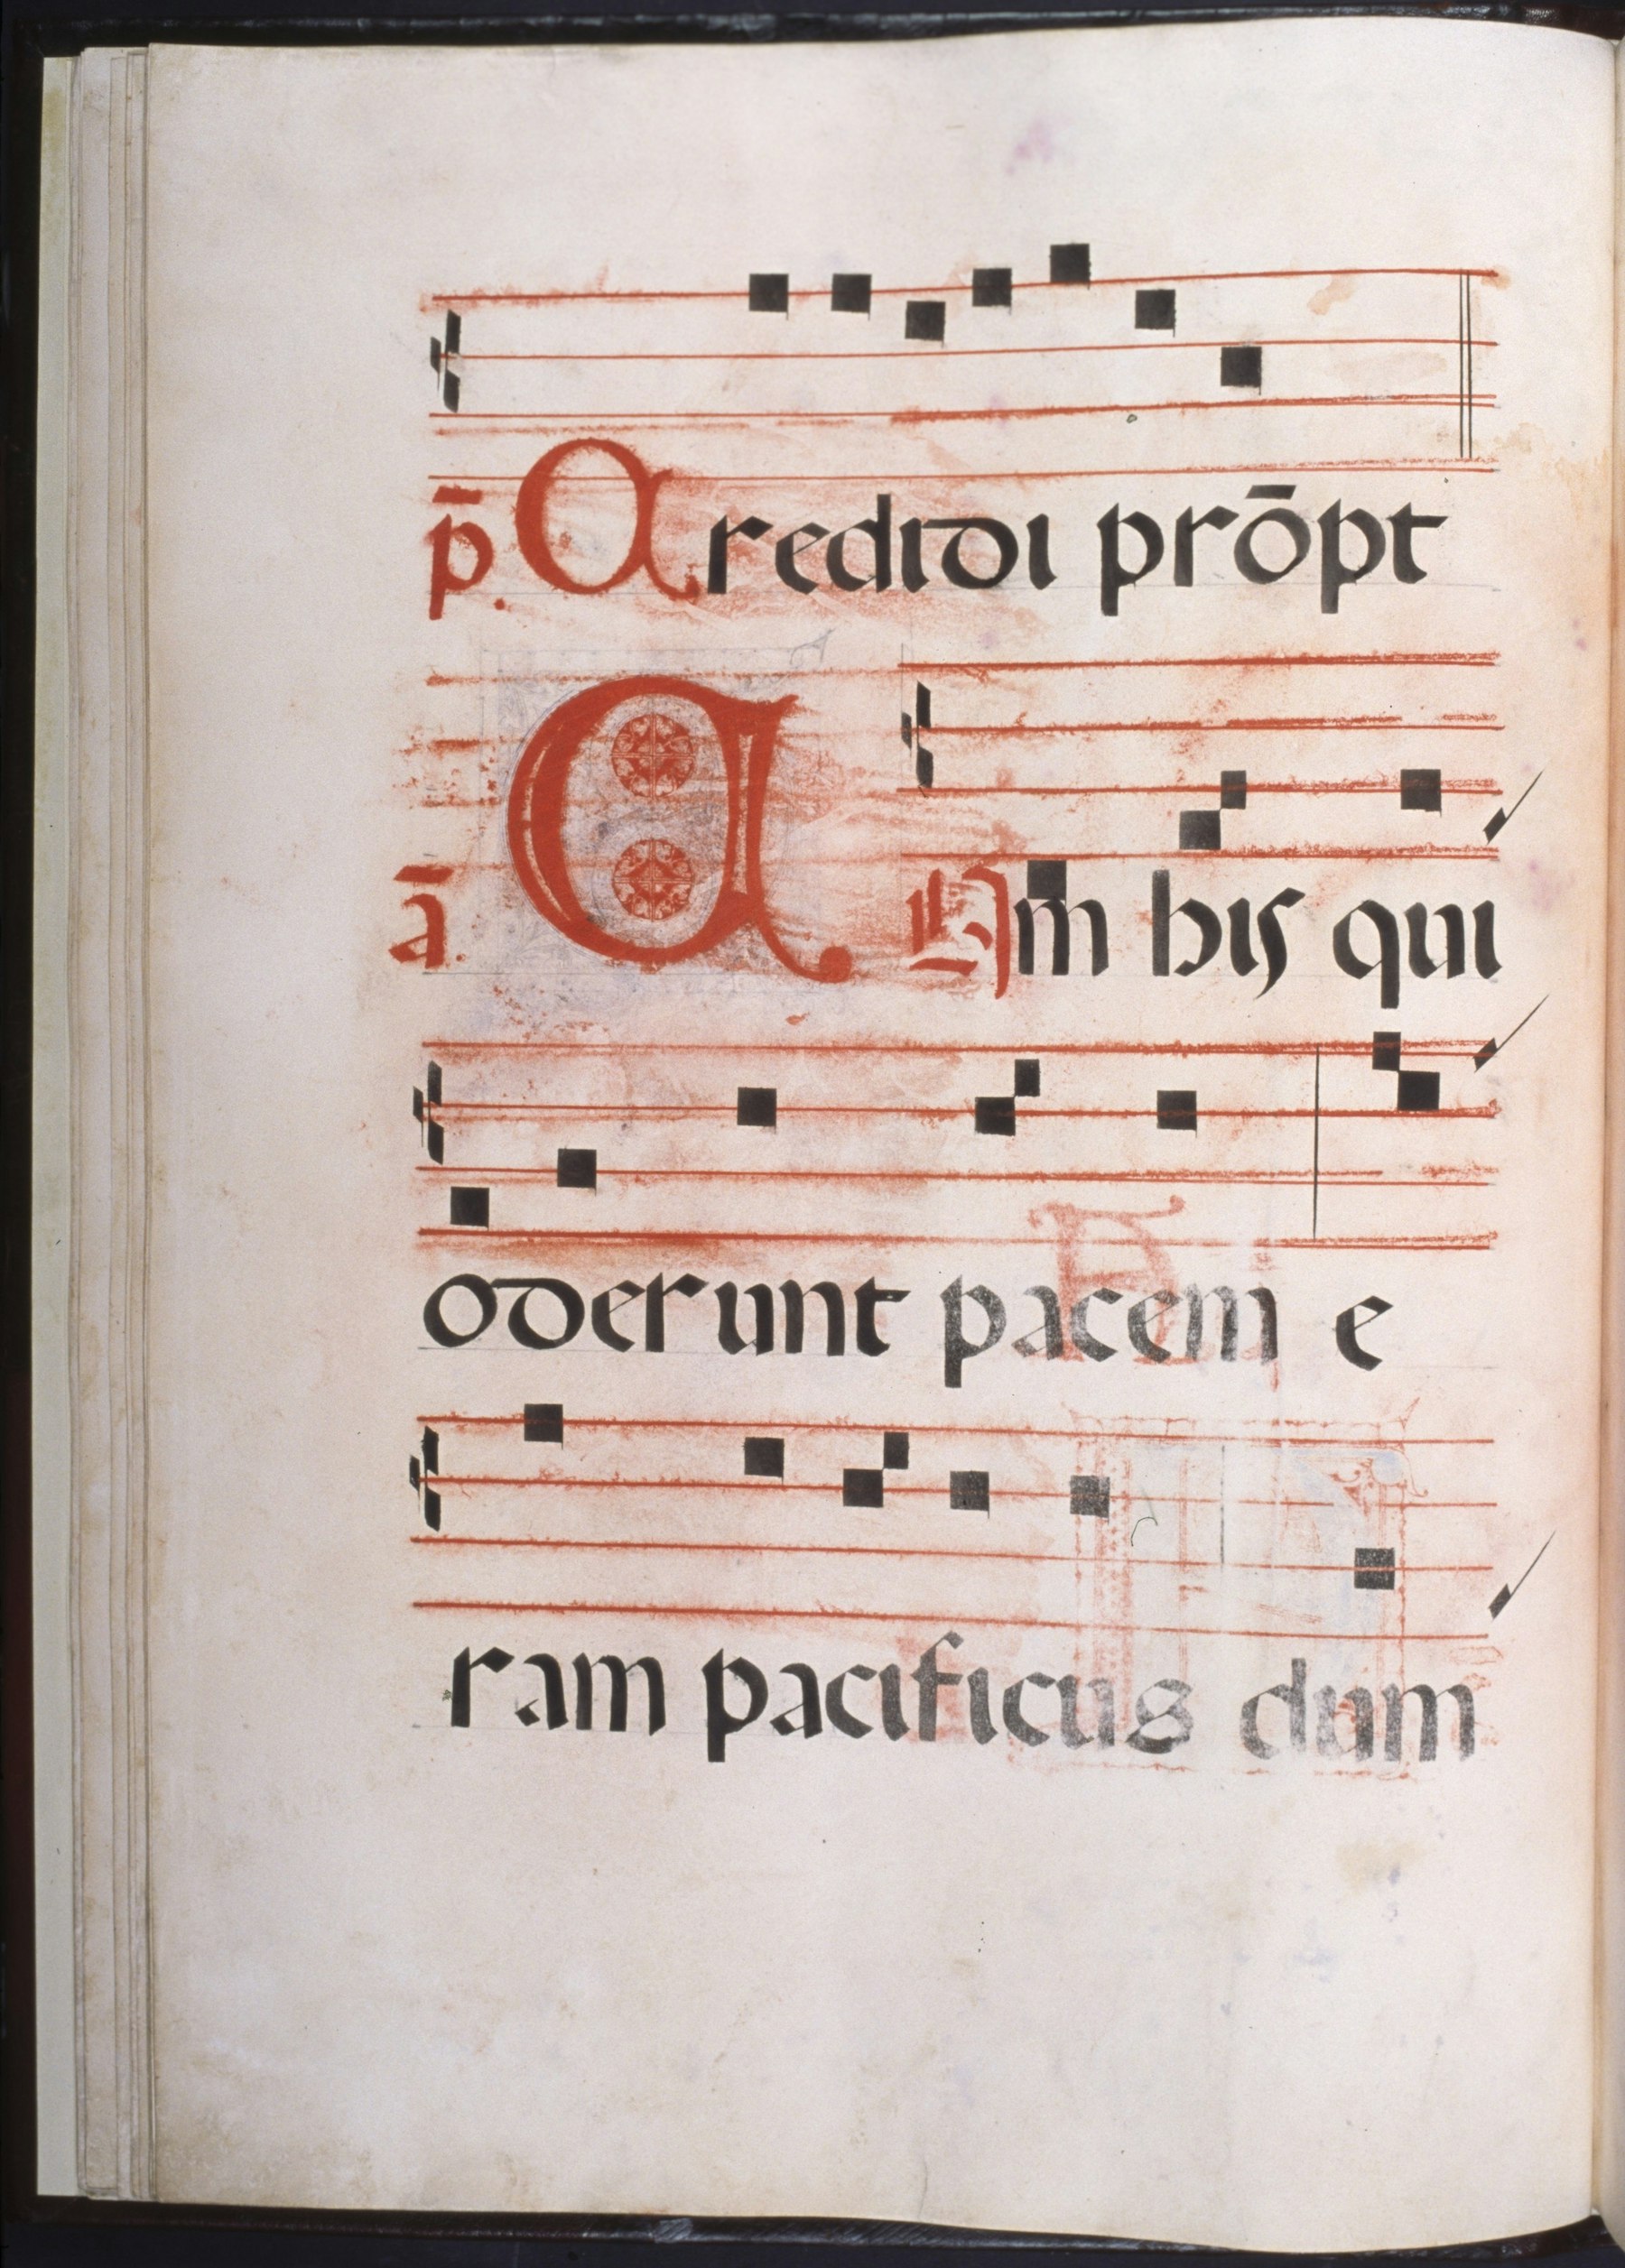 p̄. Credidi prōpt
ā. CUm his qui
oderunt pacem e
ram pacificus dum